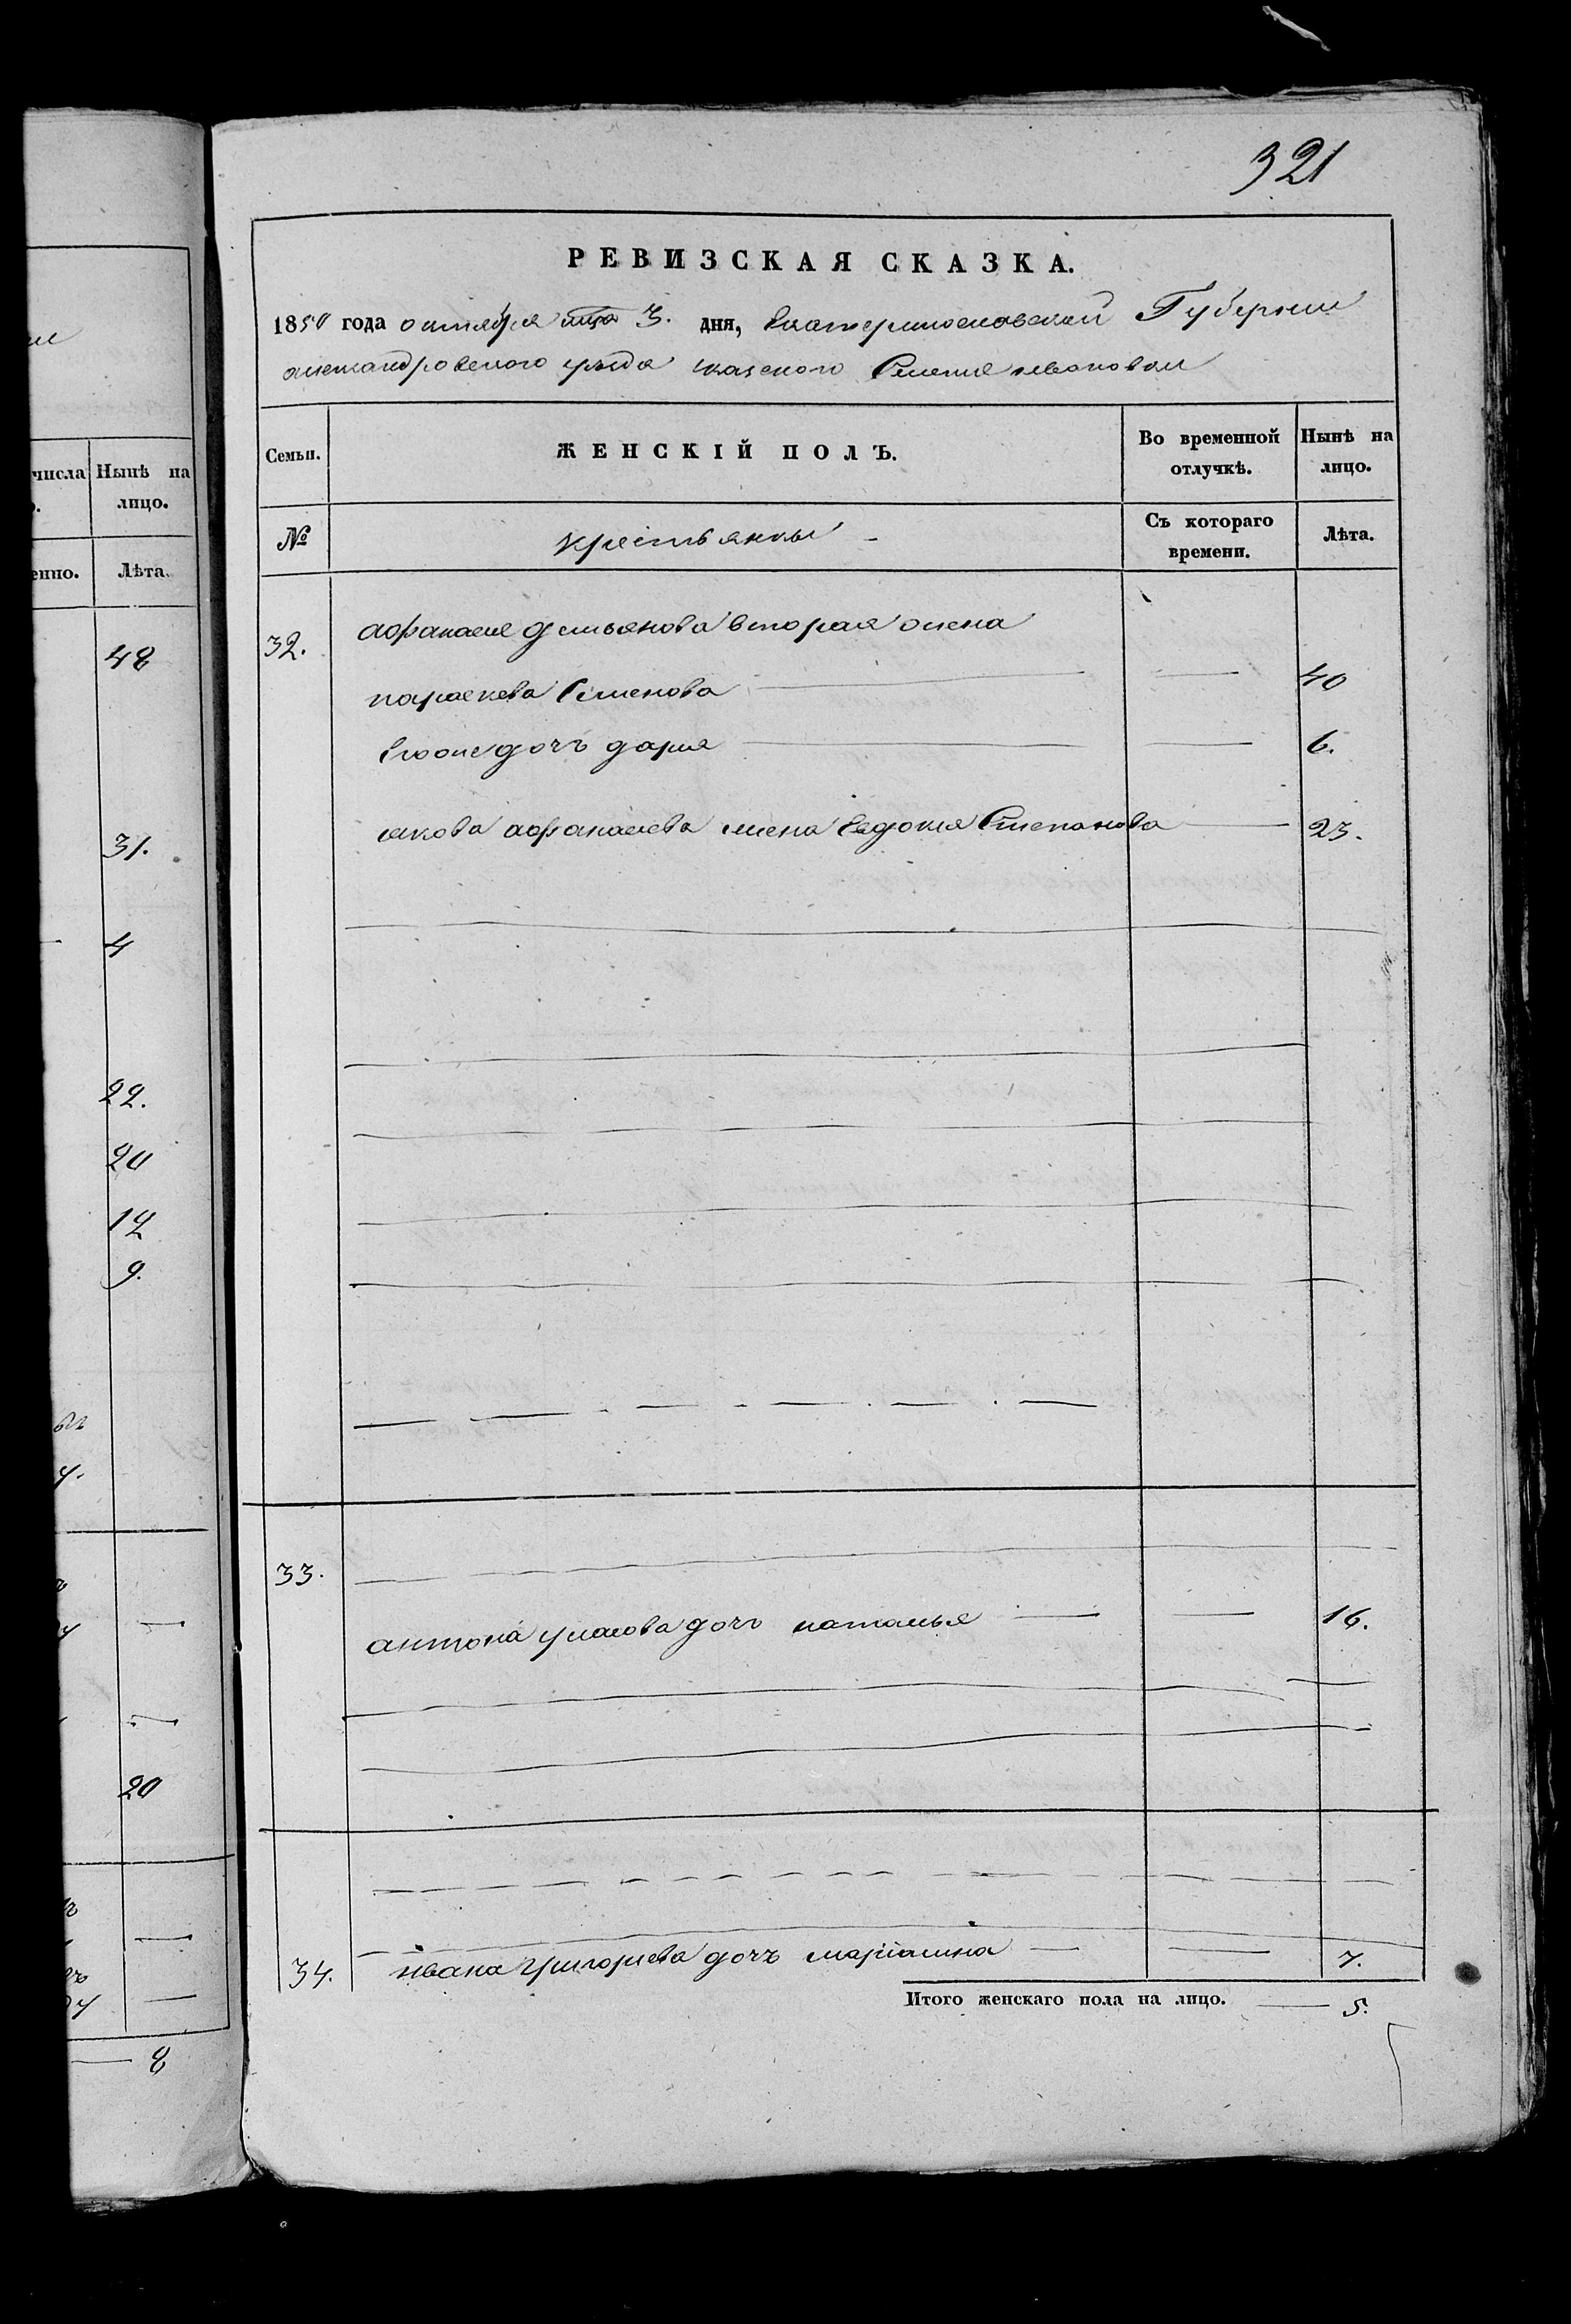 321
РЕВИЗСКАЯ СКАЗКА.
1850 года октября мца 3. дня, Екатеринославской Губернии
александровского уѣзда казеного Селения
Семьи.
ЖЕНСКІЙ ПОЛЪ.
Во временной отлучкѣ.
Нынѣ на лицо.
№
крестьянки
Съ котораго времени.
Лѣта.
32.
афанасия демьянова вторая жена
параскева Семенова 40
Егоже дочь дария 6.
якова афанасиева жена Евдокия Степанова 23.
33.
антона дочь наталья 16.
34. ивана григориева дочь 7.
Итого женскаго пола на лицо. 5.
числа
Нынѣ на лицо.
енно.
Лѣта.
48
31.
4
22.
20
12
9.
20
8